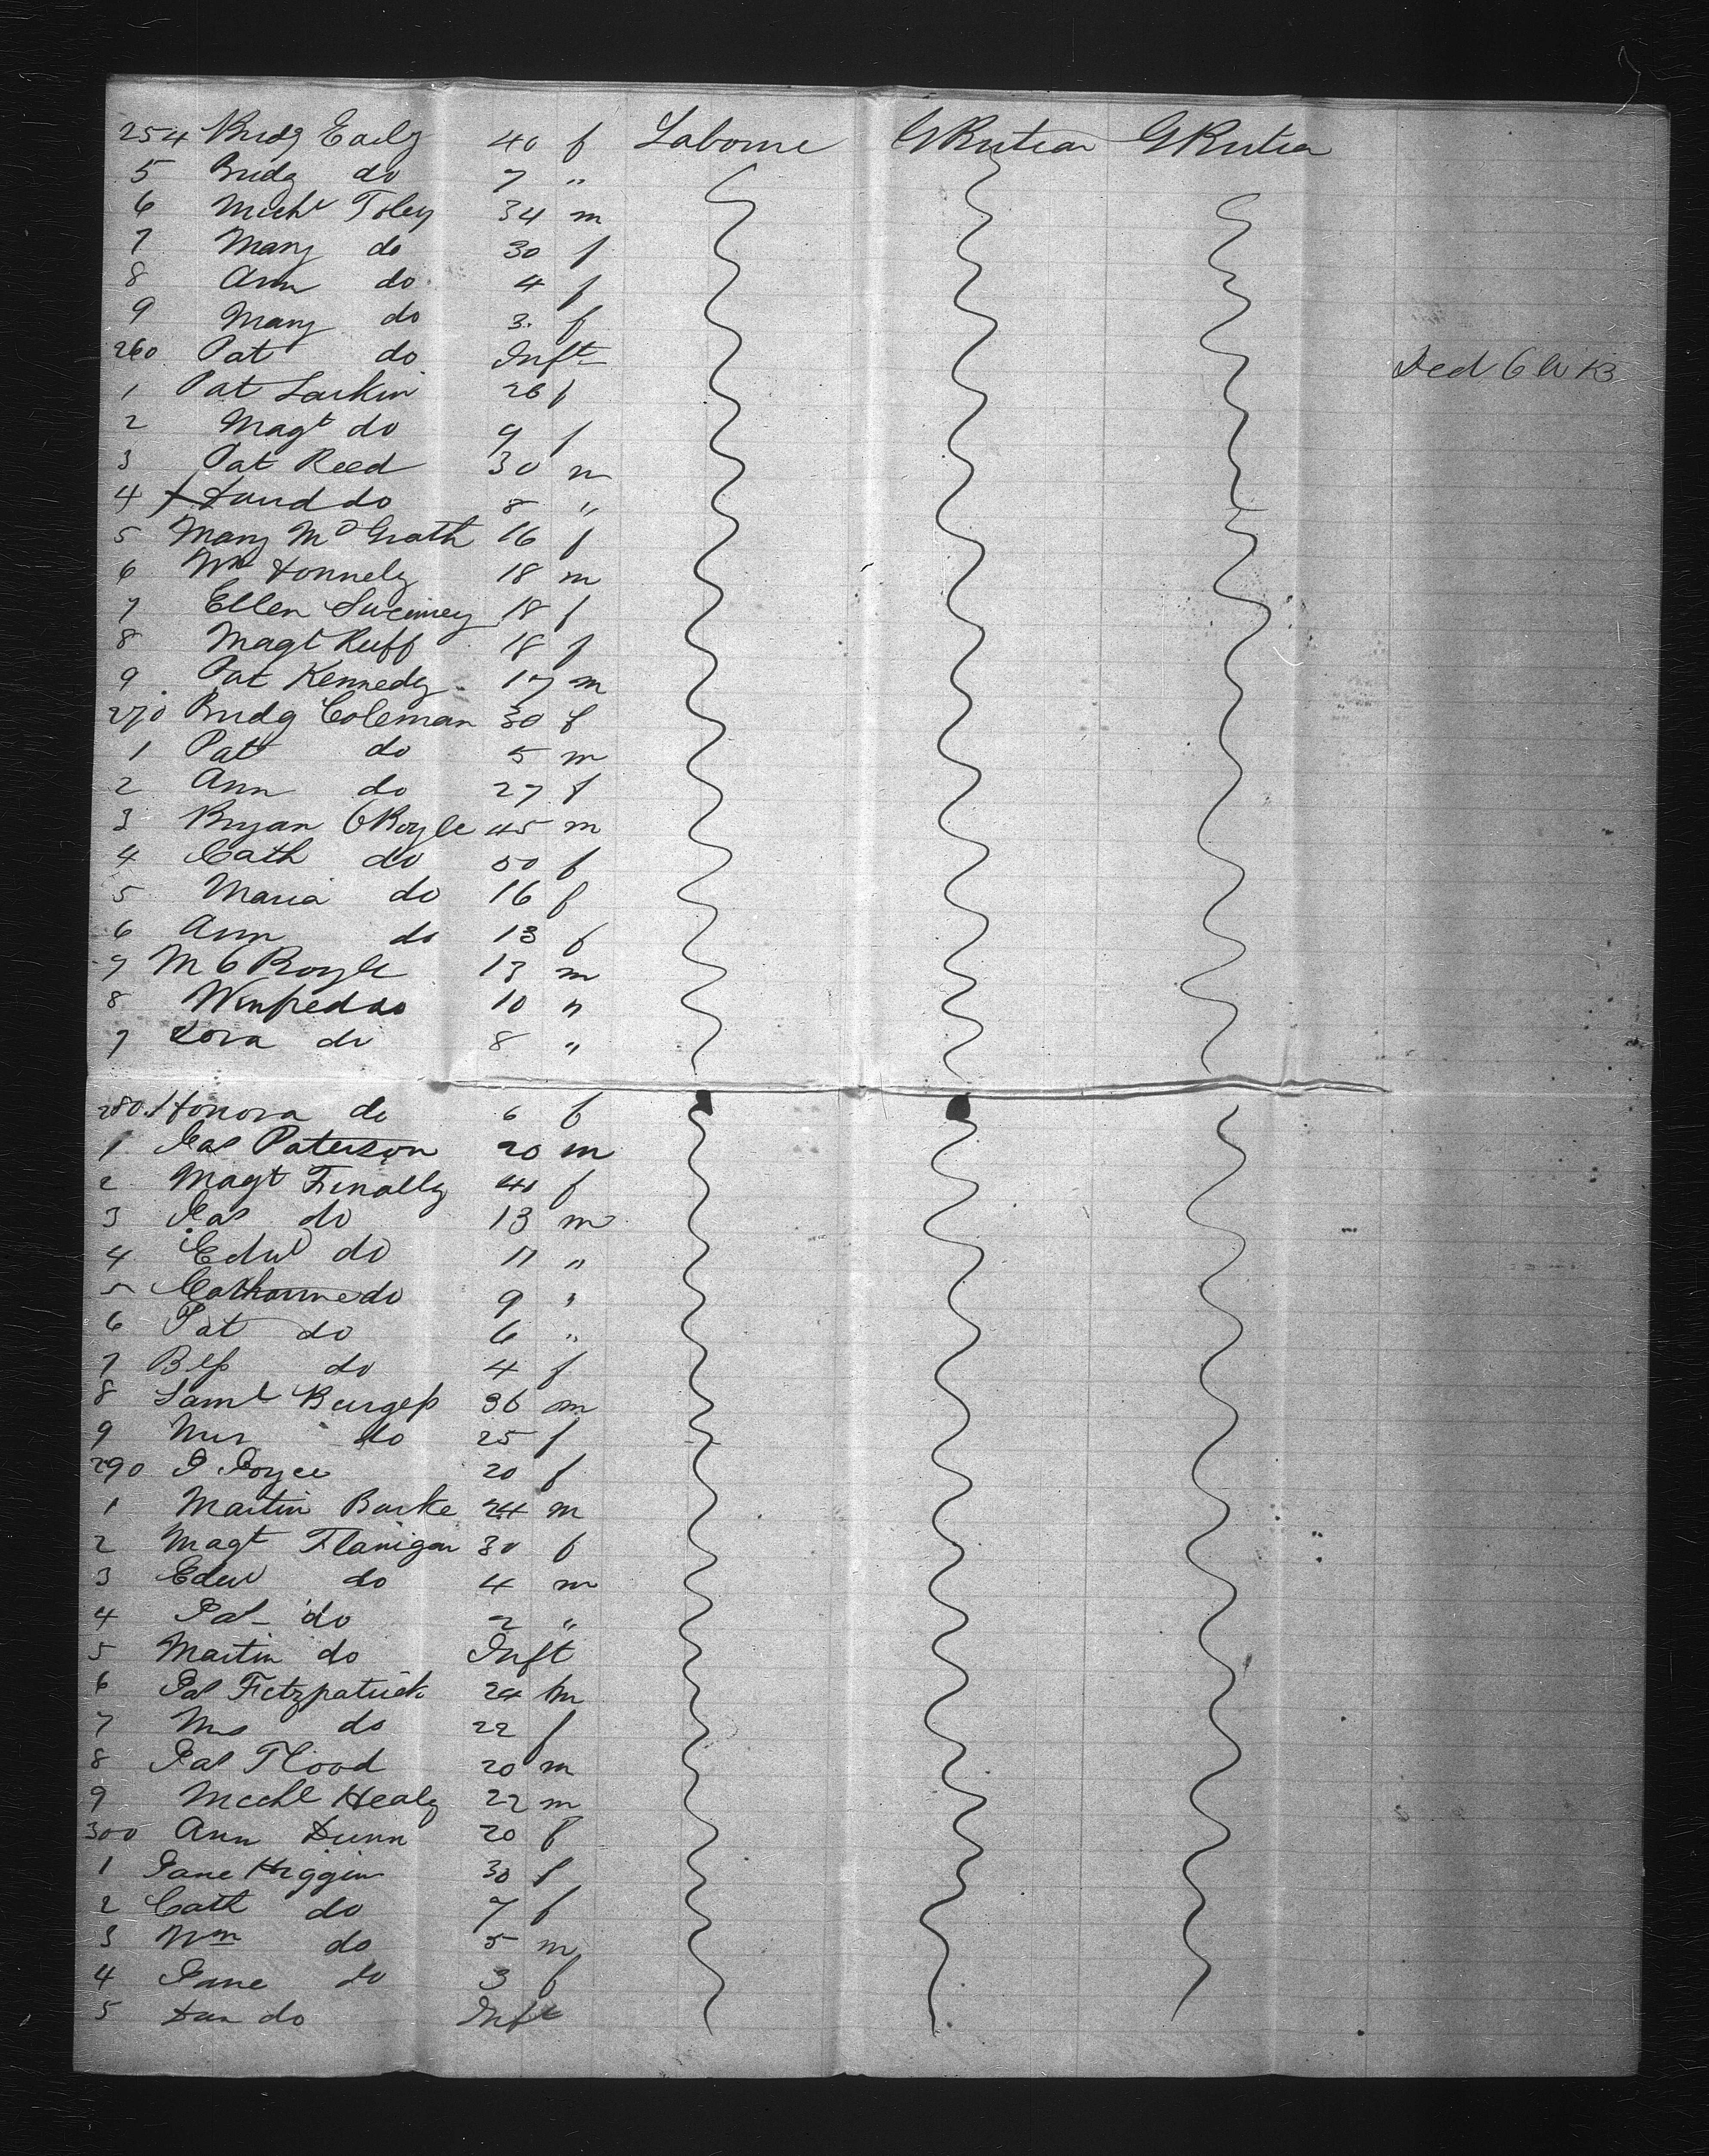 254 Bridg Early 40 f Laborne G Britian G Britia
5 Bridg do 7 "
6 Michl Foley 34 m
7 Mary do 30 f
8 Ann do 4 f
9 Mary do 3. f
260 Pat do Inft Ded 6
1 Pat Larkin 26 f
2 Magt do 9 f
3 Pat Reed 30 m
4 David do 8 "
5 Mary McGrath 16 f
6 Wm Donnely 18 m
7 Ellen Sweeney 18 f
8 Magt Ruff 18 f
9 Pat Kennedy 17 m
270 Bridg Coleman 30 f
1 Pat do 5 m
2 Ann do 27 f
3 Bryan OBoyle 45 m
4 Cath do 50 f
5 Maria do 16 f
6 Ann do 13 f
7 M O Boyle 13 m
8 Winfred do 10 "
9 do 8 "
280 Honora do 6 f
1 Jas Paterson 20 m
2 Magt Finally 40 f
3 Jas do 13 m
4 Edwd do 11 "
5 Catharine do 9 "
6 Pat do 6 "
7 Bess do 4 f
8 Saml Burgess 36 m
9 Mrs do 25 f
290 P Joyce 20 f
1 Martin Burke 24 m
2 Magt Flanigan 30 f
3 Edwd do 4 m
4 Pat do 2 "
5 Martin do Inft
6 Jas Fitzpatrick 24 m
7 Mrs do 22 f
8 Jas Flood 20 m
9 Michl Healy 22 m
300 Ann Dunn 20 f
1 Jane Higgin 30 f
2 Cath do 7 f
3 Wm do 5 m
4 Jane do 3 f
5 Dan do Inft